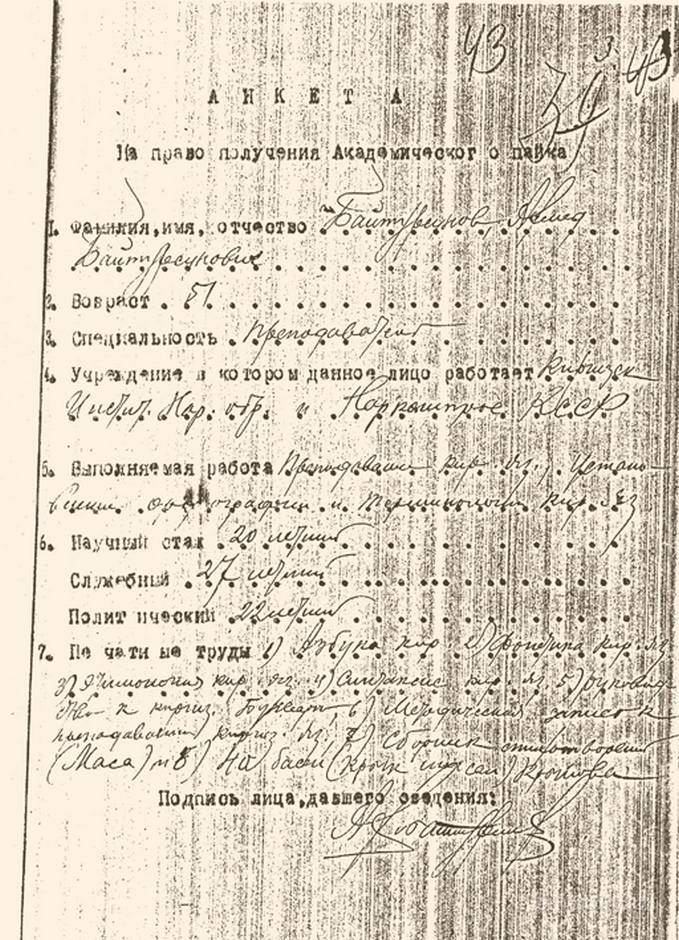 43
3.
43
АНКЕТА
На право получения Академическог о пайка
1. Фамилия, имя, отчество Байтурсунов, Ахмед
Байтурсунович
2. Возраст 51
3. Специальность преподаватель
4. Учреждение в котором данное лицо работает Киргизск
Инстит. Нар. обр. и Наркомпрос КССР
5. Выполняемая работа Преподавание кир. яз., Устано-
вление орфографии и терминологии кир. яз
6. Научный стаж 20 летний
Служебный 27 летний
Полит ический 22 летний
7. Пе чати ые труды 1) Азбука кир 2) Фонетика кир. яз
3) Этимология кир. яз. 4) Синтаксис кир. яз 5) руковод-
ство к киргиз. Букварю 6) Методическая записка
преподавании киргиз. яз. 7) Сборник стихотворений
(Маса) и 8) 40 басен (Крылова
Подпись лица, давшего сведения: